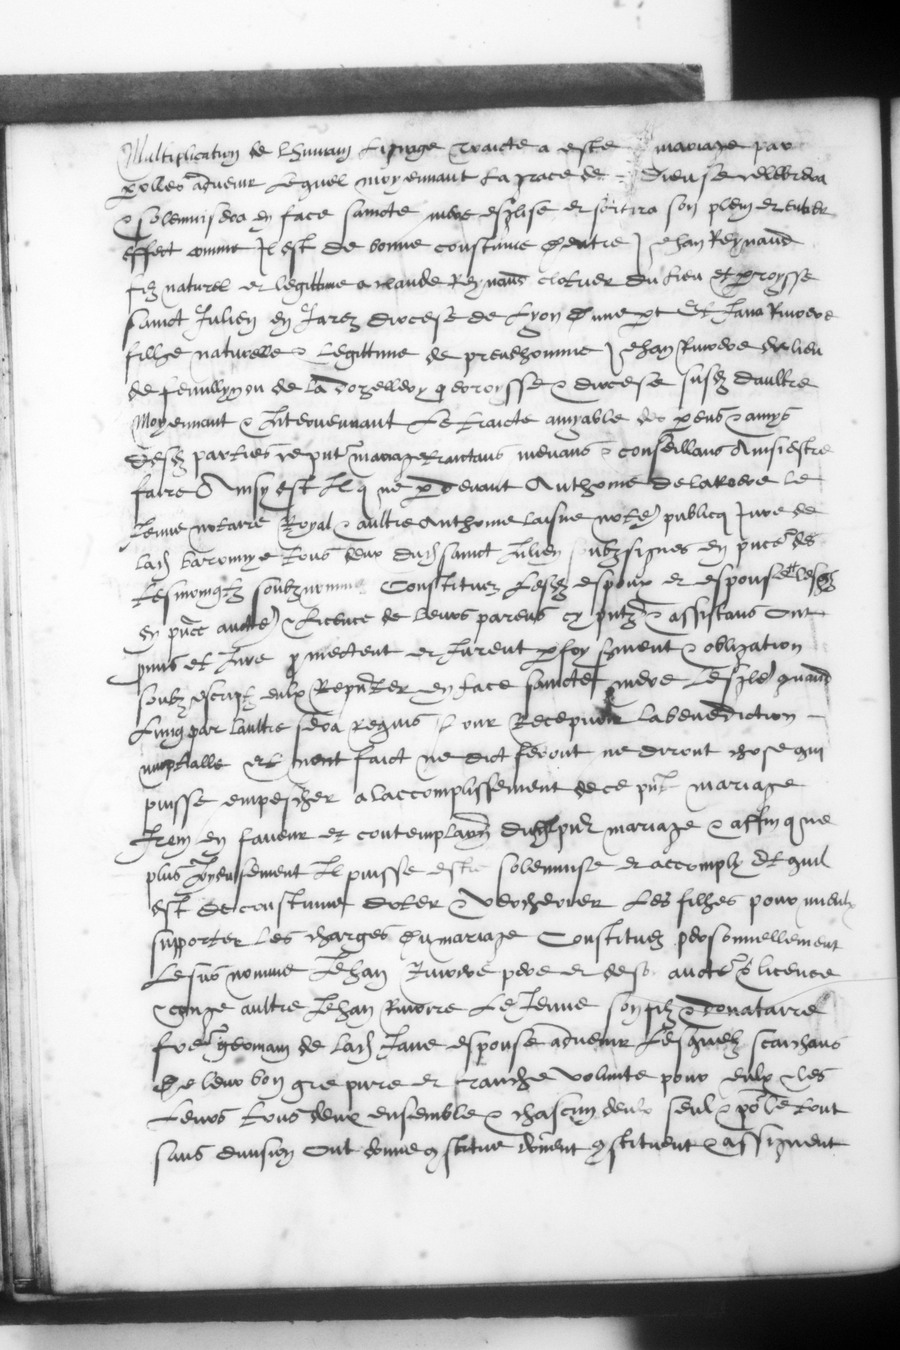 Multiplication de lhumain lignage traicte a esté mariage par
parolles advenir Lequel moyennant La grace de Dieu se cellebrera
& solennisera en face saincte mere esglise et sortira son plein et entier
effect comme Il est de bonne coustume Entre Jehan Reynaud
filz naturel et legittime a claude Reynaud du lieu et parroysse
sainct Julien en Jarez diocese de Lyon dune part Et Jana Rivoere
fillhe naturelle & legittime de preudhomme Jehan Rivoere du lieu
de de La parroysse & diocese susd daultre
Moyennant & Intervenant Le traicte amyable des parens & amys
Desd parties ce pnt mariage traictans menans & conseillans Ainsi estre
faire Ainsy est Il q par devant Anthoine Delaroere le
Jeune notaire Royal & aultre Anthoine laisne notere publicq Jure de
lad baronnye tous deux dud sainct Julien soubzsignes en pnce des
tesmoingtz soubznommes Constituez Lesd espoux et espouse lesd
en pnce aucte & Licence de leurs parens cy pntz & assistans Ont
promis et Jure promectent et Jurent par foy serment & obligation
soubz escript eulx Repnter en face saincte mere Lesglise quand
Lung par laultre sera requis Pour Recepvoir La benediction
nuptialle et nont faict ne dict feront ne diront chose qui
puisse empescher a laccomplissement de ce pnt mariage
Item en faveur et contemplation dud pnt mariage & affin que
plus Joyeusement Il puisse estre solennise et accomply Et quil
est de coustume doter & les filhes pour mieulx
supporter les charges du mariage Constituez personnellement
Le sus nomme Jehan Rivoere pere et de sa aucte & licence
& conge aultre Jehan Rivoire Le Jeune son filz & donataire
frere germain de lad Jane espouse advenir Lesquelz scaichans
De leur bon gre pure et franche volunte pour eulx & les
Leurs tous deux ensemble & chascun deulx seul & pour le tout
sans division Ont donne constitue donnent constituent & assignent